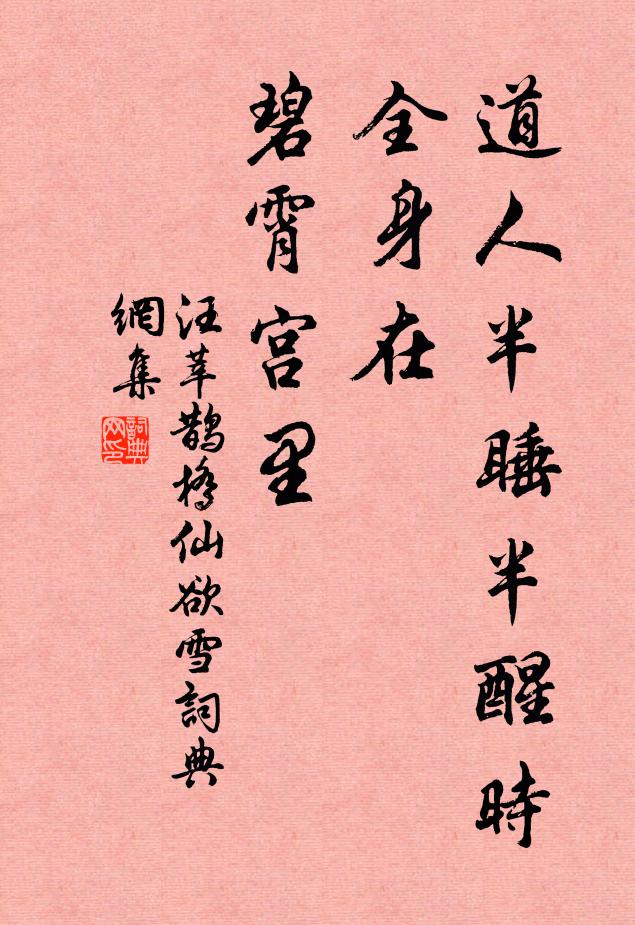 道人半睡半醒時
全身在
碧霄宫里
汪莘鵲橋仙欲雪詞典
網集
詞典
网印